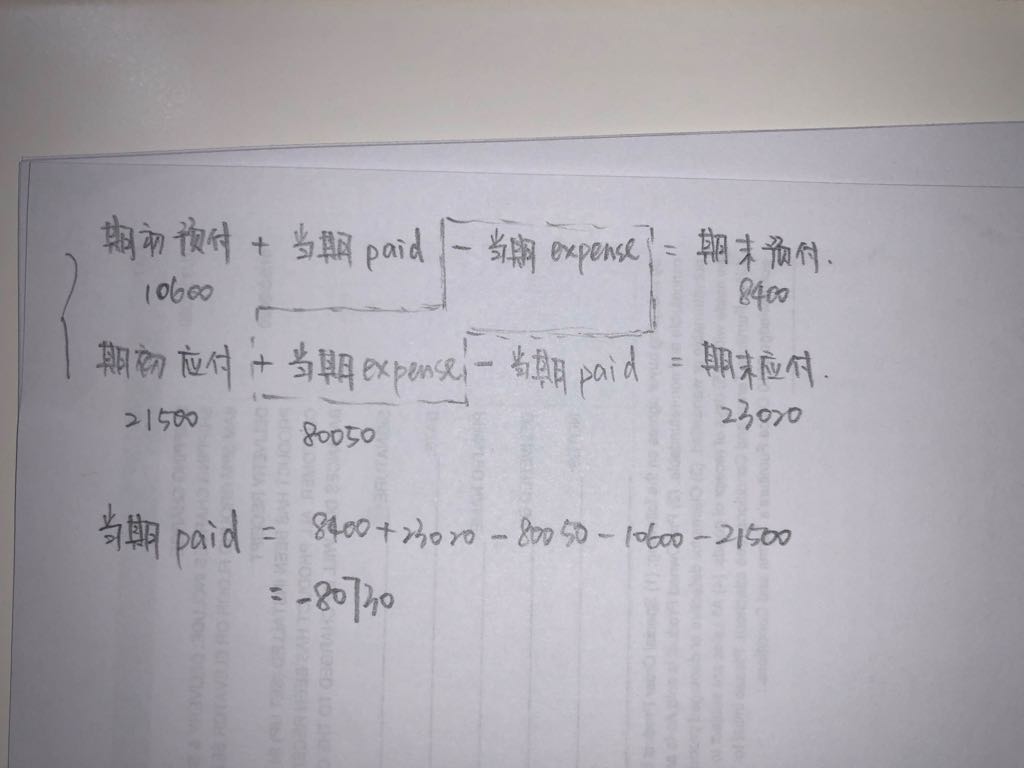 期初预付 + 当期 paid - 当期 expense = 期末预付.
10600 8400
期初应付 + 当期 expense - 当期 paid = 期末应付.
21500 80050 23020
当期 paid = 8400 + 23020 - 80050 - 10600 - 21500
= -80730